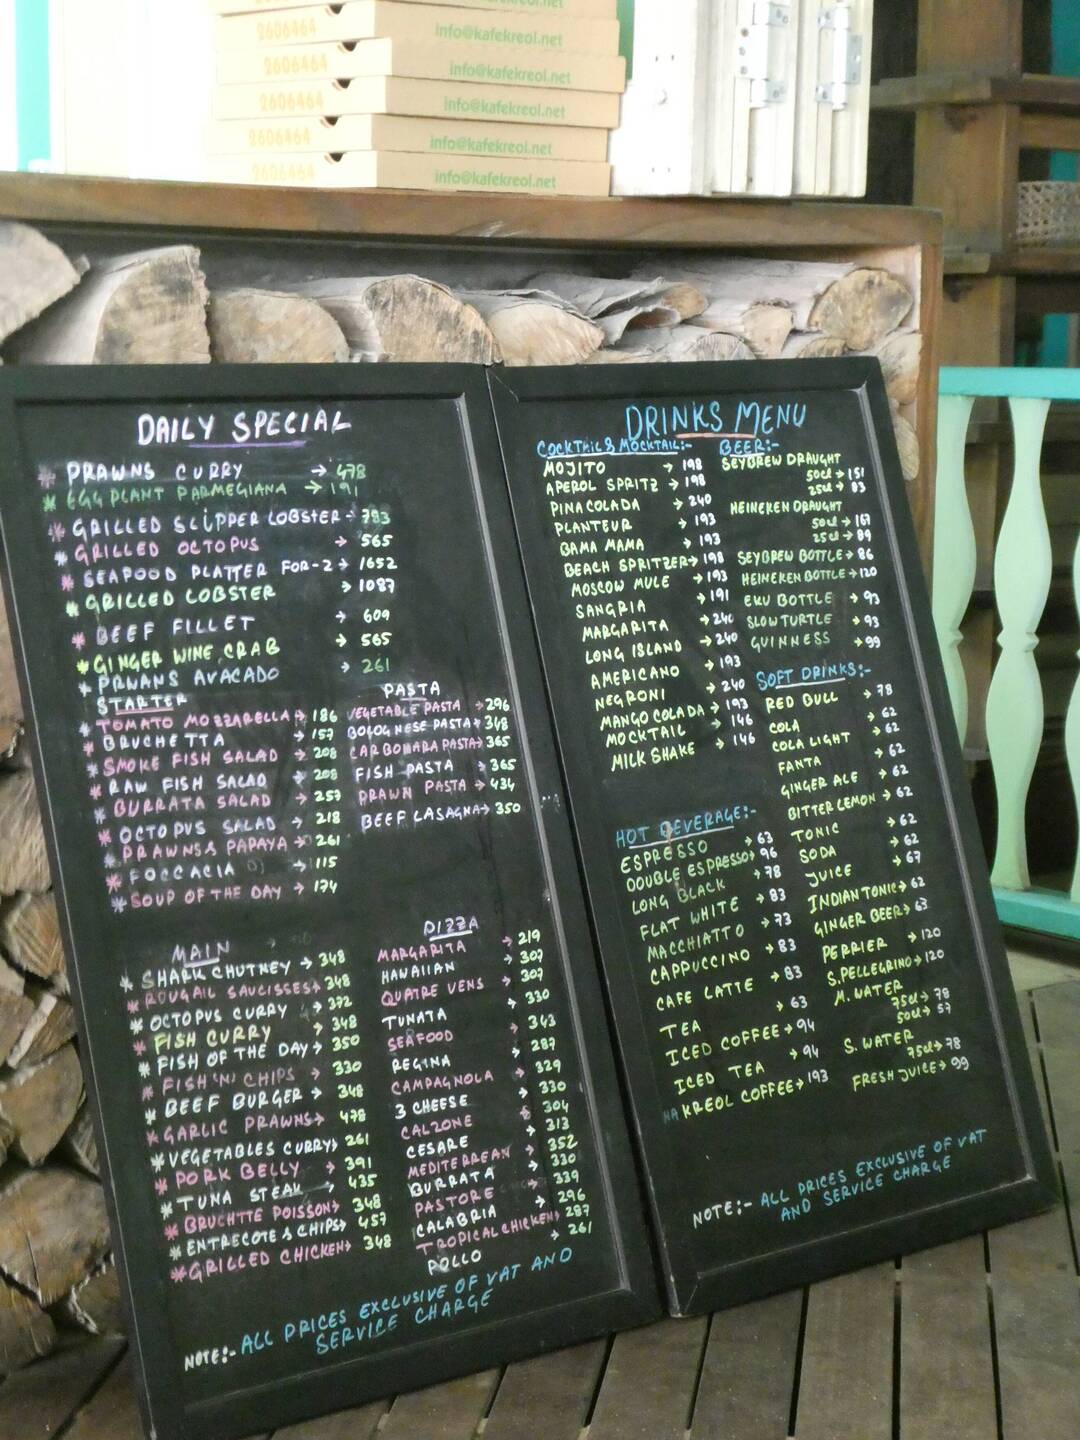 info@kafekreol.net
2606464 info@kafekreol.net
2606464 info@kafekreol.net
2606464 info@kafekreol.net
2606464 info@kafekreol.net
2606464 info@kafekreol.net
DAILY SPECIAL
* PRAWNS CURRY → 478
* EGG PLANT PARMEGIANA → 191
* GRILLED SLIPPER LOBSTER → 783
* GRILLED OCTOPUS → 565
* SEAFOOD PLATTER FOR-2 → 1652
* GRILLED LOBSTER → 1087
* BEEF FILLET → 609
* GINGER WINE CRAB → 565
* PRWANS AVACADO → 261
STARTER
* TOMATO MOZZARELLA → 186
* BRUCHETTA → 157
* SMOKE FISH SALAD → 208
* RAW FISH SALAD → 208
* BURRATA SALAD → 257
* OCTOPUS SALAD → 218
* PRAWNS & PAPAYA → 261
* FOCCACIA → 115
* SOUP OF THE DAY → 174
PASTA
VEGETABLE PASTA → 296
BOLOGNESE PASTA → 348
CARBONARA PASTA → 365
FISH PASTA → 365
PRAWN PASTA → 434
BEEF LASAGNA → 350
MAIN
* SHARK CHUTNEY → 348
* ROUGAIL SAUCISSES → 348
* OCTOPUS CURRY → 372
* FISH CURRY → 348
* FISH OF THE DAY → 350
* FISH 'N' CHIPS → 330
* BEEF BURGER → 348
* GARLIC PRAWNS → 478
* VEGETABLES CURRY → 261
* PORK BELLY → 391
* TUNA STEAK → 435
* BRUCHTTE POISSON → 348
* ENTRECOTE & CHIPS → 457
* GRILLED CHICKEN → 348
PIZZA
MARGARITA → 219
HAWAIIAN → 307
QUATRE VENS → 307
TUNATA → 330
SEAFOOD → 343
REGINA → 287
CAMPAGNOLA → 329
3 CHEESE → 330
CALZONE → 304
CESARE → 313
MEDITERREAN → 352
BURRATA → 330
PASTORE → 339
CALABRIA → 296
TROPICAL CHICKEN → 287
POLLO → 261
NOTE:- ALL PRICES EXCLUSIVE OF VAT AND
SERVICE CHARGE
DRINKS MENU
COCKTAIL & MOCKTAIL:-
MOJITO → 198
APEROL SPRITZ → 198
PINACOLADA → 240
PLANTEUR → 193
BAMA MAMA → 193
BEACH SPRITZER → 198
MOSCOW MULE → 193
SANGRIA → 191
MARGARITA → 240
LONG ISLAND → 240
AMERICANO → 193
NEGRONI → 240
MANGO COLADA → 193
MOCKTAIL → 146
MILK SHAKE → 146
BEER:-
SEYBREW DRAUGHT
50cl → 151
25cl → 83
HEINEKEN DRAUGHT
50cl → 167
25cl → 89
SEYBREW BOTTLE → 86
HEINEKEN BOTTLE → 120
EKU BOTTLE → 93
SLOW TURTLE → 93
GUINNESS → 99
SOFT DRINKS:-
RED BULL → 78
COLA → 62
COLA LIGHT → 62
FANTA → 62
GINGER ALE → 62
BITTER LEMON → 62
TONIC → 62
SODA → 62
JUICE → 67
INDIAN TONIC → 62
GINGER BEER → 63
PERRIER → 120
S.PELLEGRINO → 120
M. WATER
75cl → 78
50cl → 57
S. WATER
75cl → 78
FRESH JUICE → 99
HOT BEVERAGE:-
ESPRESSO → 63
DOUBLE ESPRESSO → 96
LONG BLACK → 78
FLAT WHITE → 83
MACCHIATTO → 73
CAPPUCCINO → 83
CAFE LATTE → 83
TEA → 63
ICED COFFEE → 94
ICED TEA → 94
KREOL COFFEE → 193
NOTE:- ALL PRICES EXCLUSIVE OF VAT
AND SERVICE CHARGE